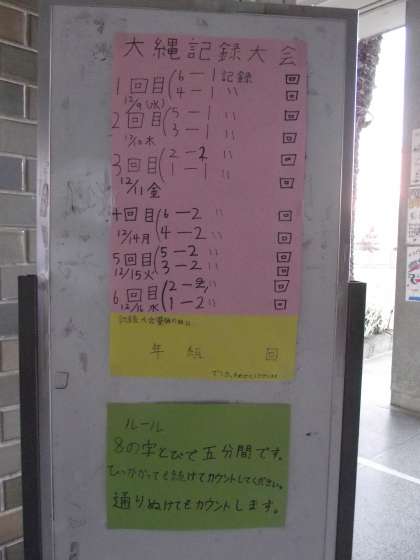 大縄記録大会
1回目(6－1 記録 回
4－1 〃 回
12/9(水)
2回目(5－1 〃 回
3－1 〃 回
12/10木
3回目(2－2 〃 回
1－1 〃 回
12/11金
4回目(6－2 〃 回
4－2 〃 回
12/14月
5回目(5－2 〃 回
3－2 〃 回
12/15火
6回目(2－2 〃 回
1－2 〃 回
12/16水
年 組 回
ルール
8の字とびで五分間です。
ひっかかっても続けてカウントしてください。
通りぬけてもカウントします。